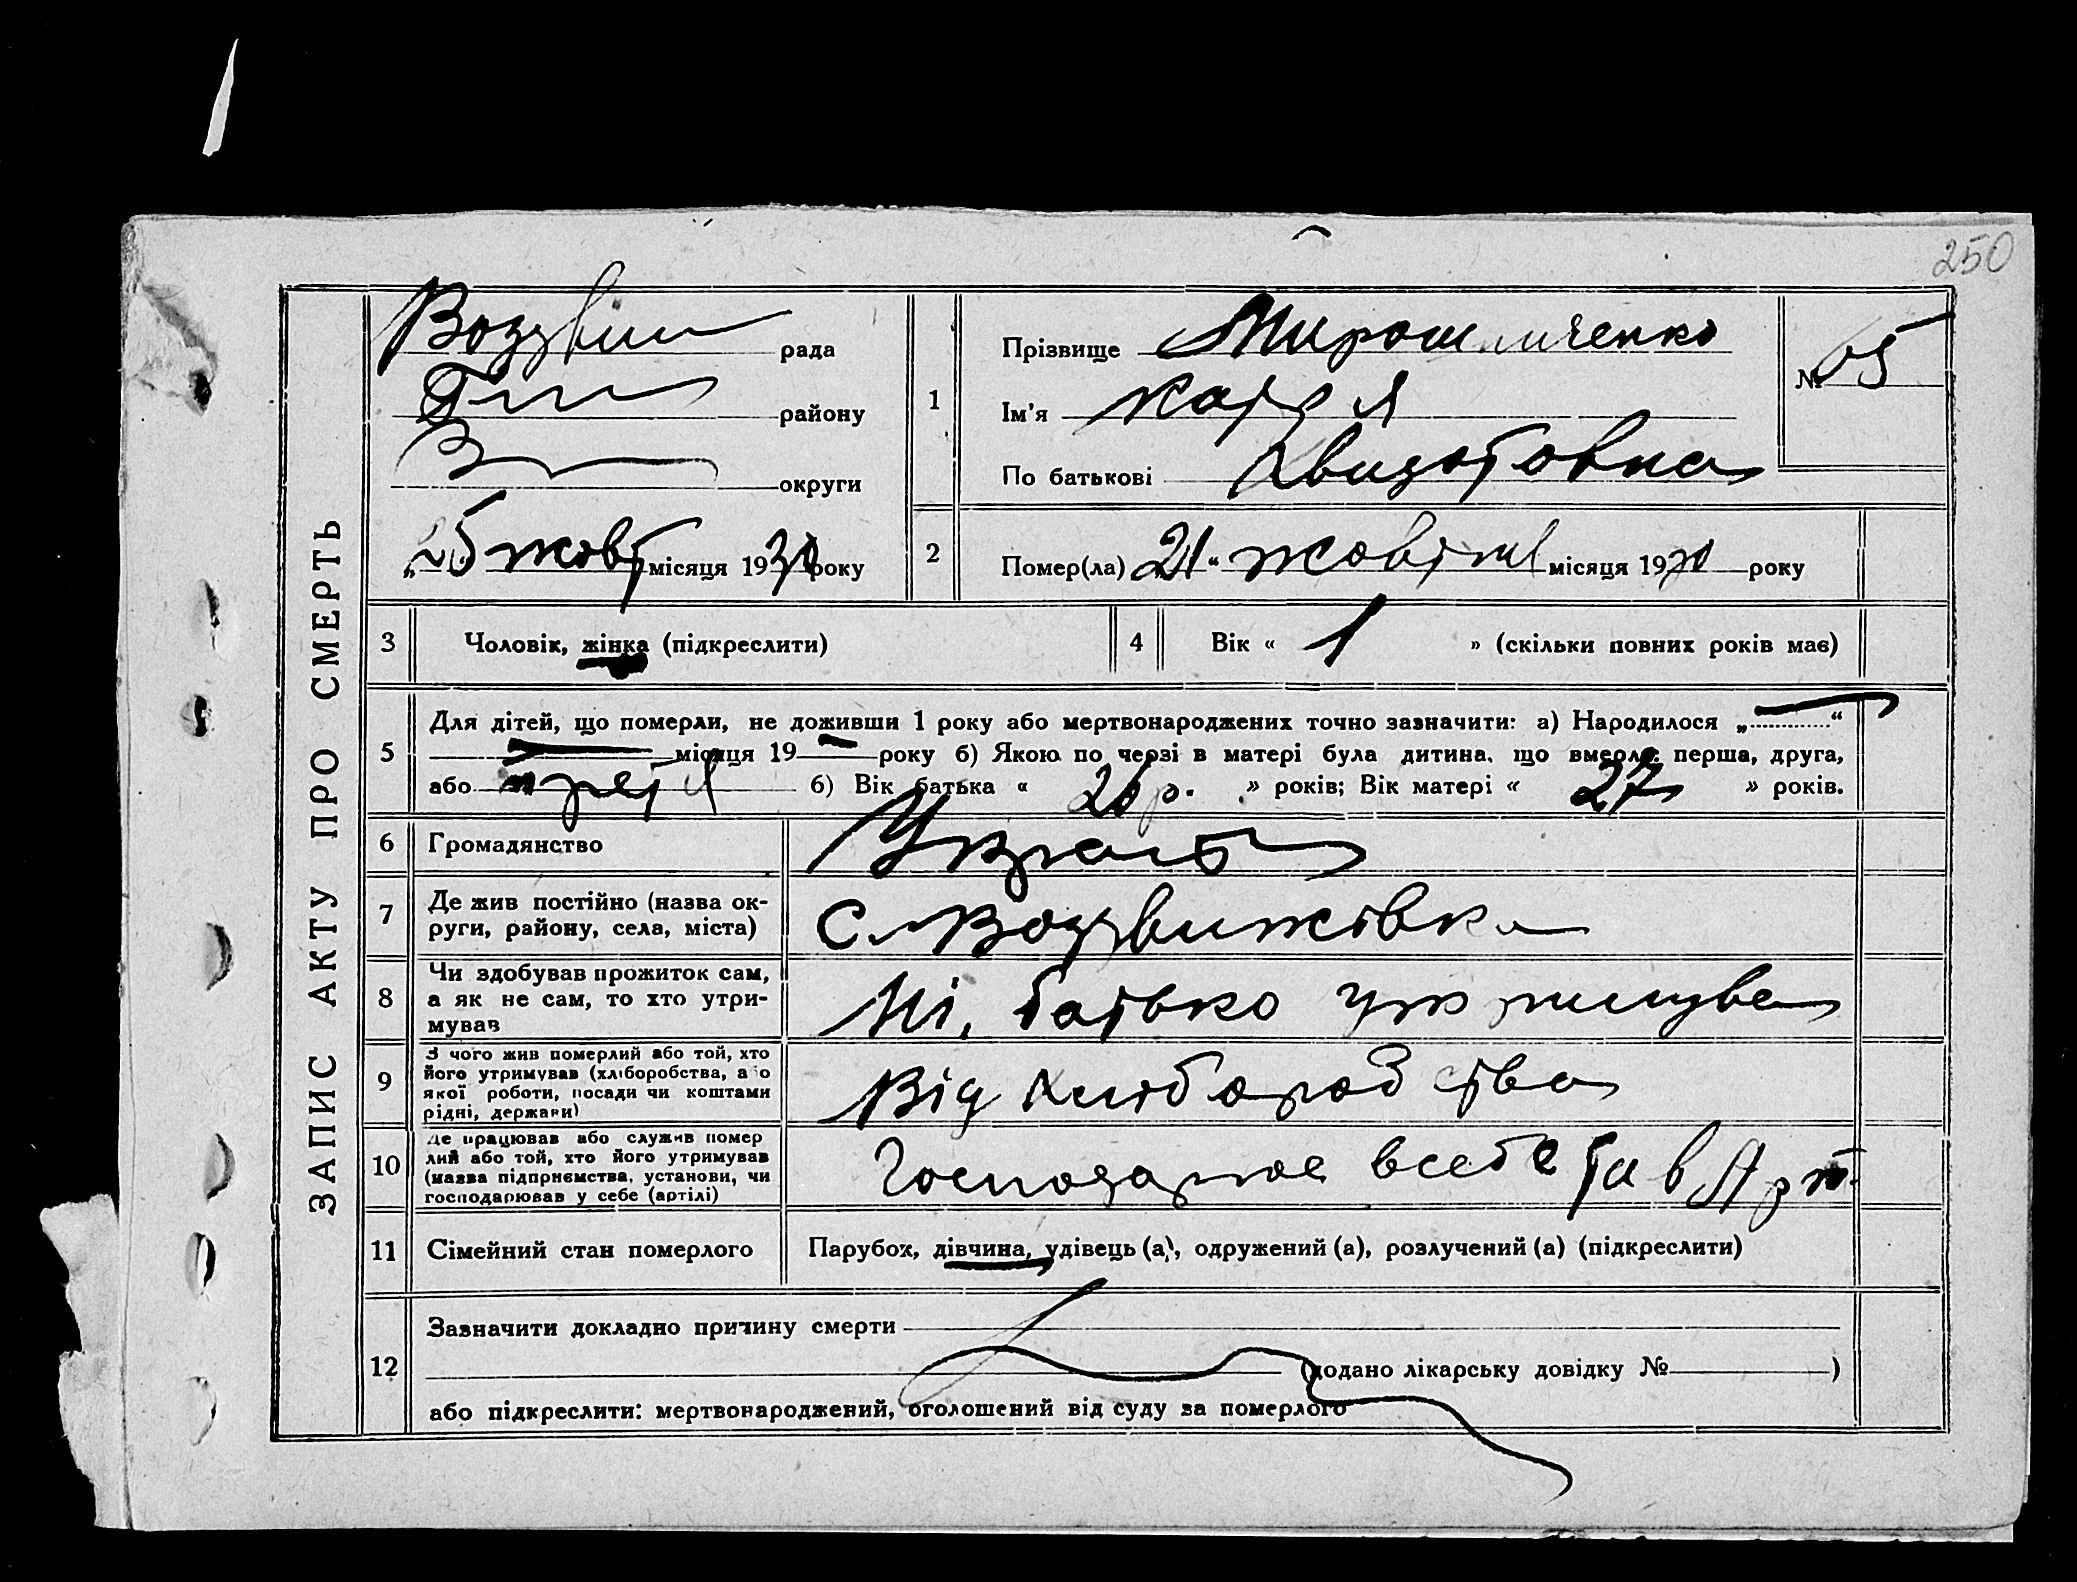 250
ЗАПИС АКТУ ПРО СМЕРТЬ
Воздвиж рада
району
округи
„25 жовт місяця 1930 року
1
Прізвище Мирошниченко
Ім'я
По батькові
№ 65
2
Помер(ла) 21 “ жовтня місяця 1930 року
3 Чоловік, жінка (підкреслити)
4 Вік « 1 » (скільки повних років має)
5 Для дітей, що померли, не доживши 1 року або мертвонароджених точно зазначити: а) Народилося „ “
місяця 19 року б) Якою по черзі в матері була дитина, що вмерла: перша, друга,
або третя б) Вік батька « 26 р. » років; Вік матері « 27 » років.
6 Громадянство
7 Де жив постійно (назва ок-
руги, району, села, міста) С. Воздвижівка
8 Чи здобував прожиток сам,
а як не сам, то хто утри-
мував Ні, батько
9 З чого жив померлий або той, хто
його утримував (хліборобства, або
якої роботи, посади чи коштами
рідні, держави) Від хліборобства
10 Де працював або служив помер
лий або той, хто його утримував
(назва підприємства, установи, чи
господарював у себе (артілі) всебе та в Арт.
11 Сімейний стан померлого Парубок, дівчина, удівець (а), одружений (а), розлучений (а) (підкреслити)
12 Зазначити докладно причину смерти
(додано лікарську довідку № )
або підкреслити: мертвонароджений, оголошений від суду за померлого